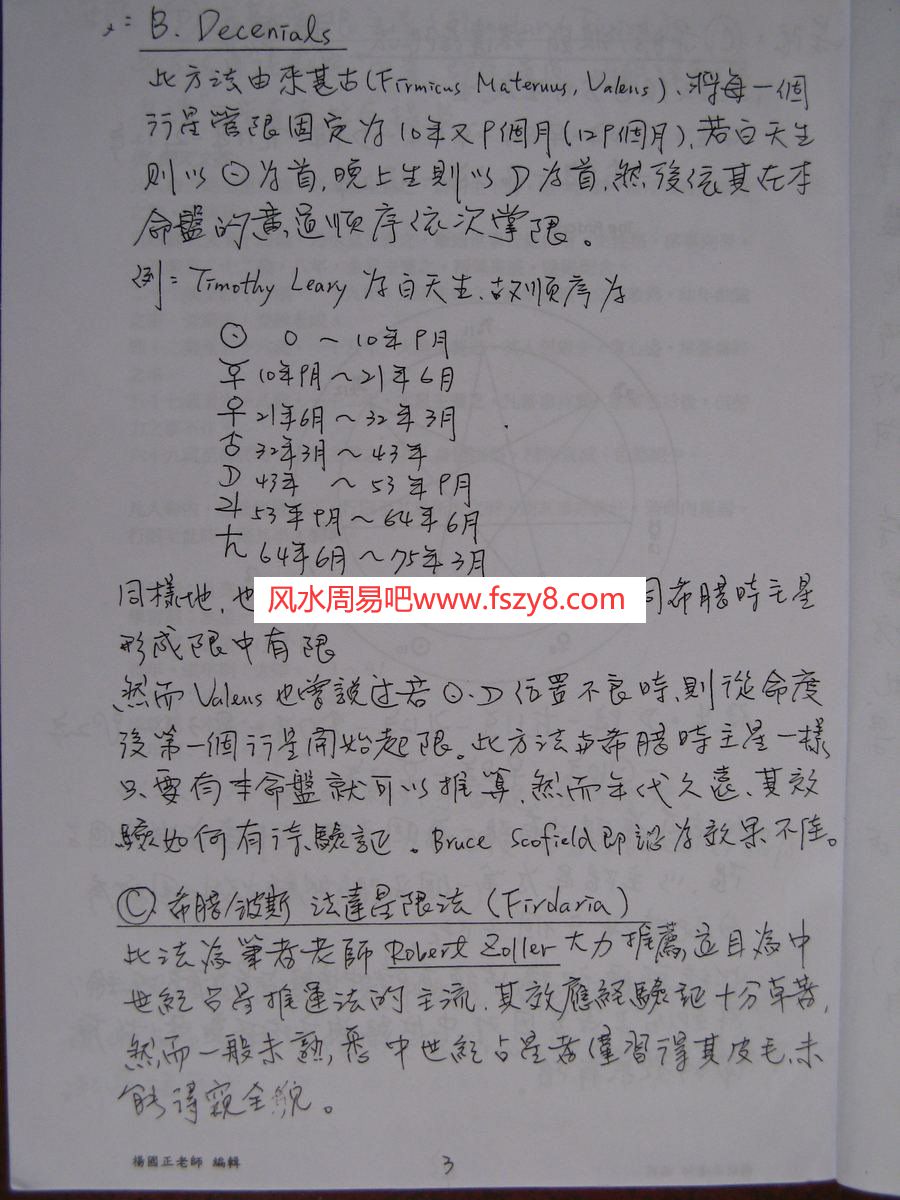 B. Decenials
此方法由來甚古(Firmicus Maternus, Valens)、將每一個
行星管限固定為10年又9個月(129個月),若白天生
則以☉為首,晚上生則以☽為首,然後依其在本
命盤的黃道順序依次掌限。
例:Timothy Leary 為白天生、故順序為
☉ 0 ~ 10年9月
☿ 10年9月~21年6月
♀ 21年6月~32年3月
♂ 32年3月~43年
☽ 43年 ~53年9月
♃ 53年9月~64年6月
♄ 64年6月~75年3月
同樣地,也 风水周易吧www.fszy8.com 同希腊時主星
形成限中有限
然而Valens也曾說过若☉、☽位置不良時,則從命度
後第一個行星開始起限。此方法與希腊時主星一樣
只要有本命盤就可以推算,然而年代久遠、其效
驗如何有待驗証。Bruce Scofield即認為效果不佳。
Ⓒ 希腊/波斯 法達星限法(Firdaria)
此法為筆者老師Robert Zoller大力推薦,這目為中
世紀占星推運法的主流、其效應経驗証十分卓著,
然而一般未熟悉中世紀占星者僅習得其皮毛、未
能得窺全貌。
楊國正老師 編輯
3